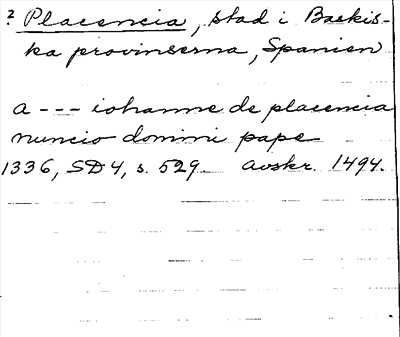 ? Placencia, stad i Baskis-
ka provinserna, Spanien
a --- iohanne de placencia
nuncio domini pape
1336, SD 4, s. 529. Avskr. 1494.